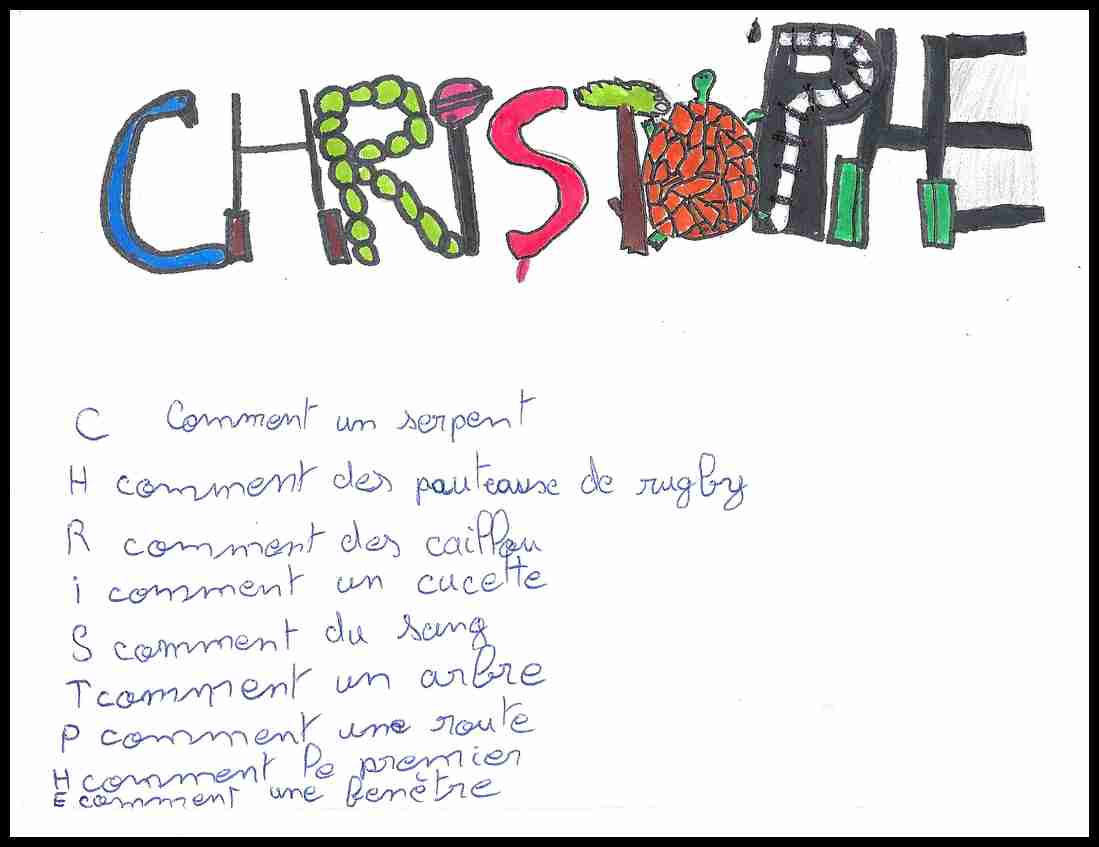 CHRISTOPHE
C Comment un serpent
H comment des pauteause de rugby
R comment des caillou
i comment un cucette
S comment du sang
T comment un arbre
P comment une route
H comment le premier
E comment une fenêtre